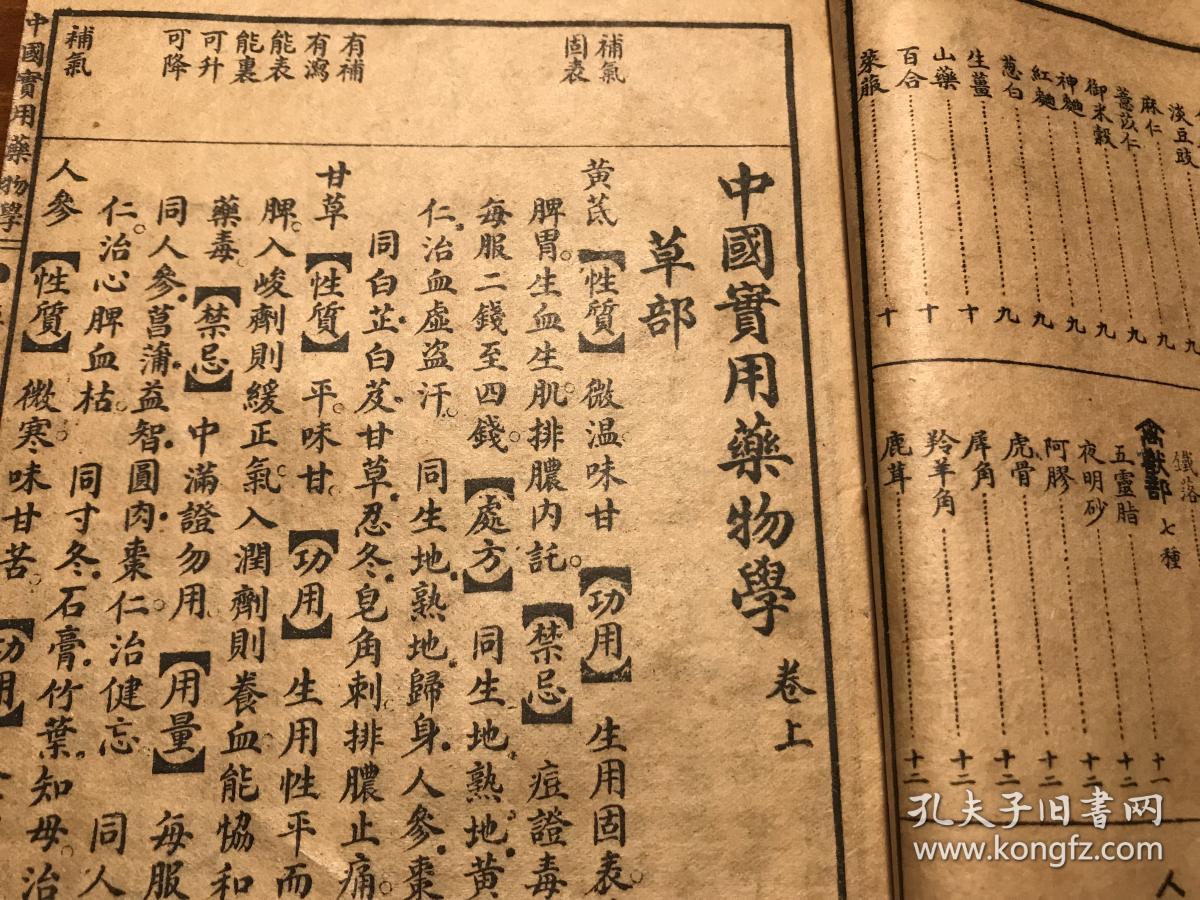 淡豆豉
麻仁
薏苡仁……九
御米殼……九
神麯……九
紅麯……九
葱白……九
生薑……十
山藥……十
百合……十
萊菔……十
鐵落……十一
禽獸部 七種
五靈脂……十二
夜明砂……十二
阿膠……十二
虎骨……十二
犀角……十二
羚羊角……十二
鹿茸……十二
人
中國實用藥物學 卷上
草部
補氣
固表
黃芪【性質】微温味甘【功用】生用固表
脾胃。生血生肌排膿内託。【禁忌】痘證毒
每服二錢至四錢。【處方】同生地熟地。黃
仁。治血虛盜汗。同生地熟地歸身人參棗
同白芷白芨甘草忍冬皂角刺排膿止痛。
有補
有瀉
能表
能裏
可升
可降
甘草【性質】平。味甘。【功用】生用性平而
脾。入峻劑則緩正氣。入潤劑則養血。能恊和
藥毒。【禁忌】中滿證勿用【用量】每服
同人參菖蒲益智圓肉棗仁治健忘 同人
仁。治心脾血枯。同寸冬石膏竹葉知母。治
補氣
人參【性質】微寒。味甘苦。【功用】
中國實用藥物學
孔夫子旧书网
www.kongfz.com